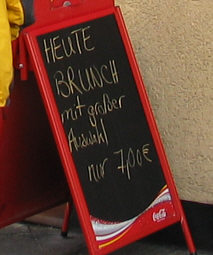 HEUTE
BRUNCH
mit großer
Auswahl
nur 7,00€
Coca-Cola